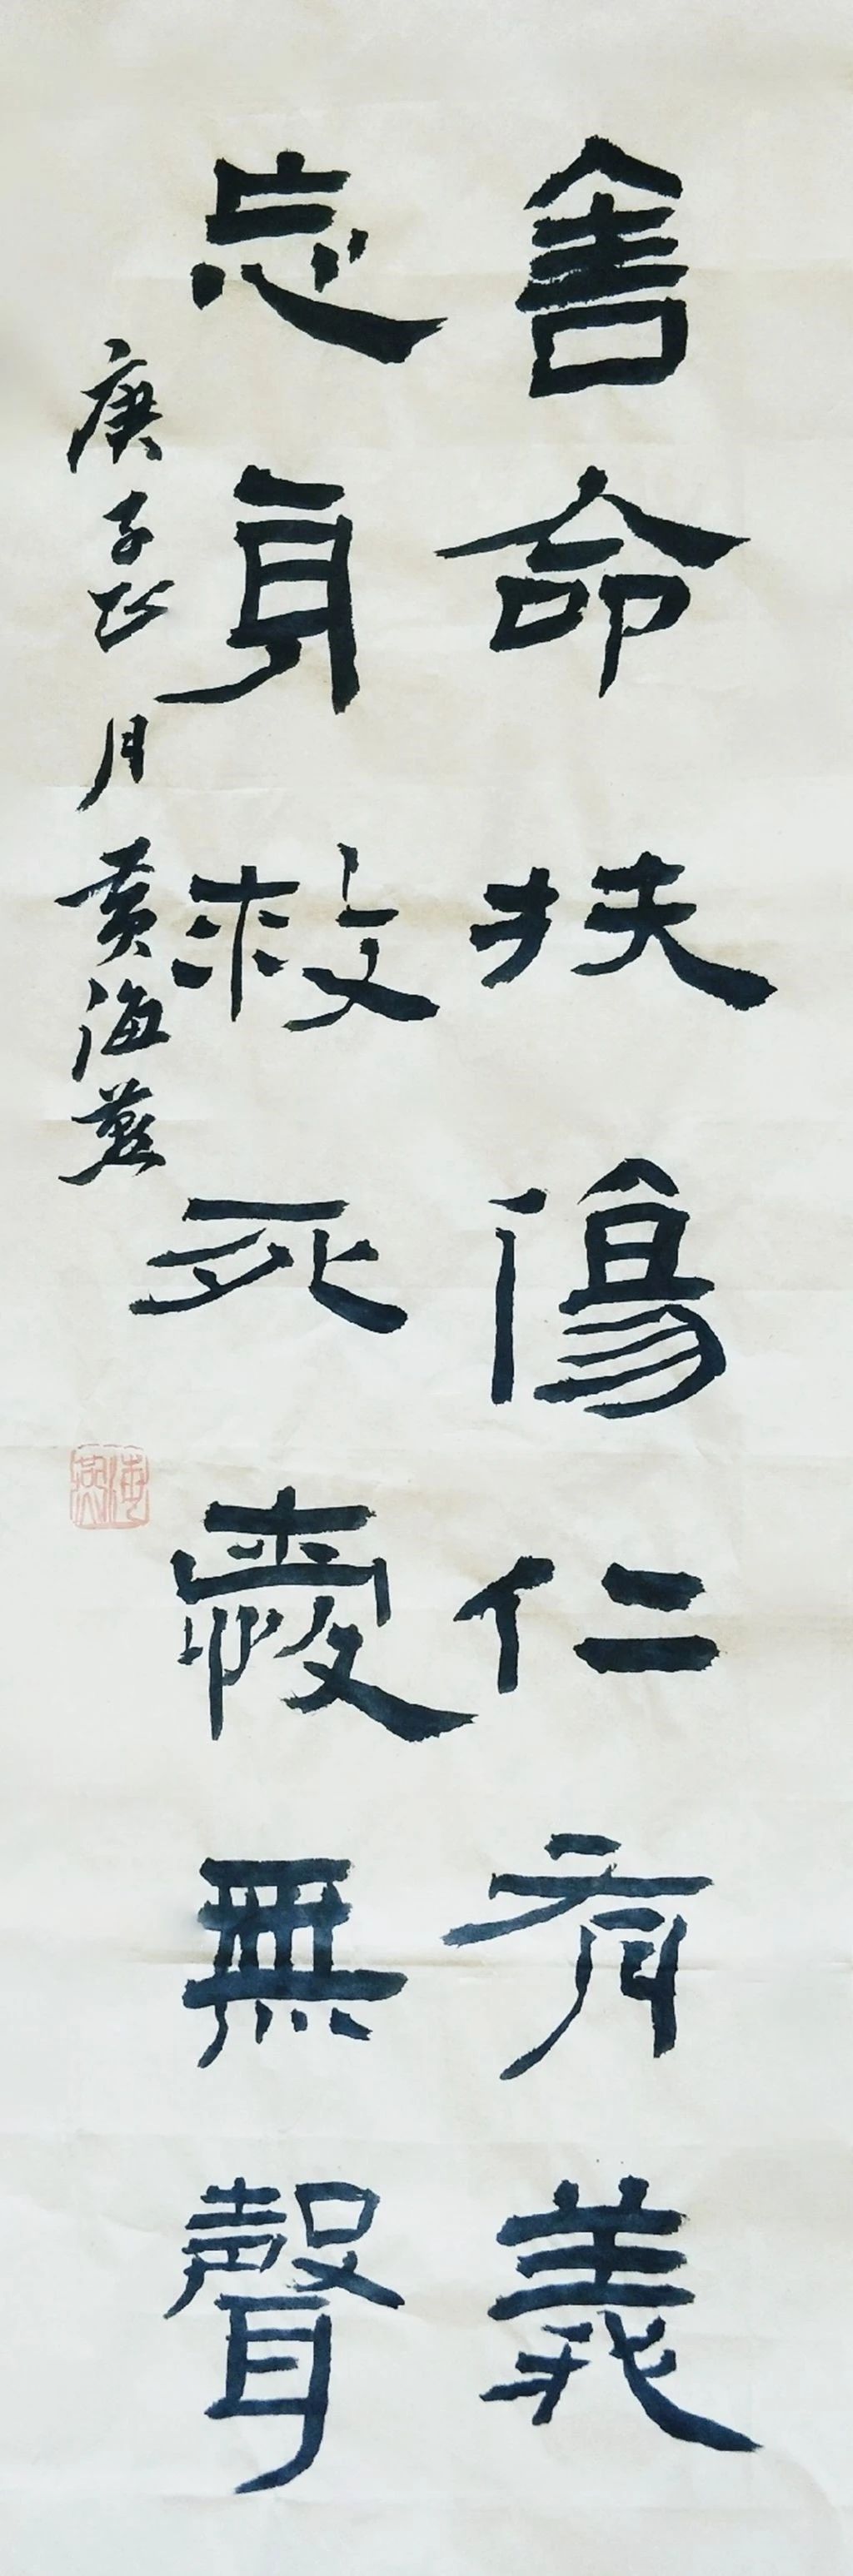 舍命扶傷仁有義
忘身救死愛無聲
庚子正月黃海燕
海燕